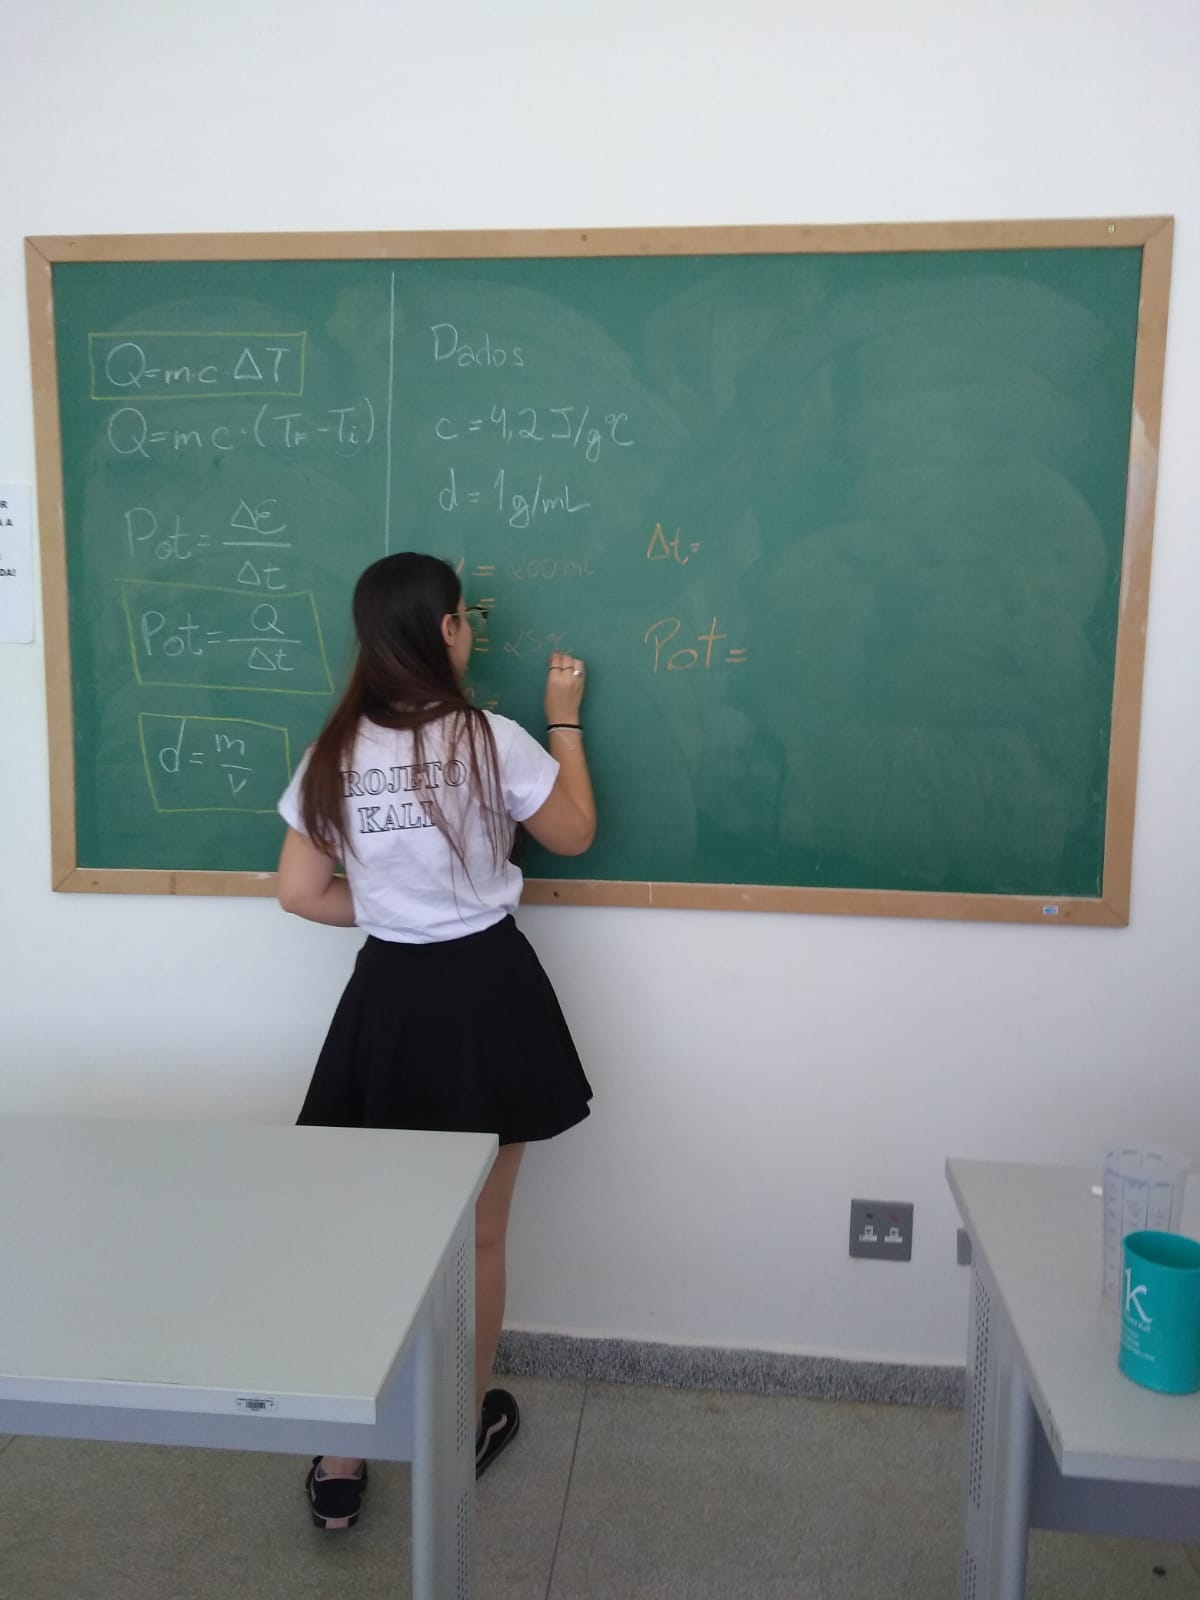 Q=m.c.ΔT
Q=m.c.(TF-Ti)
Pot=Δε/Δt
Pot=Q/Δt
d=m/v
Dados
c=4,2J/g°C
d=1g/mL
V = 200mL
=
= 25°C
=
Δt=
Pot=
ROJETO
KALI
k